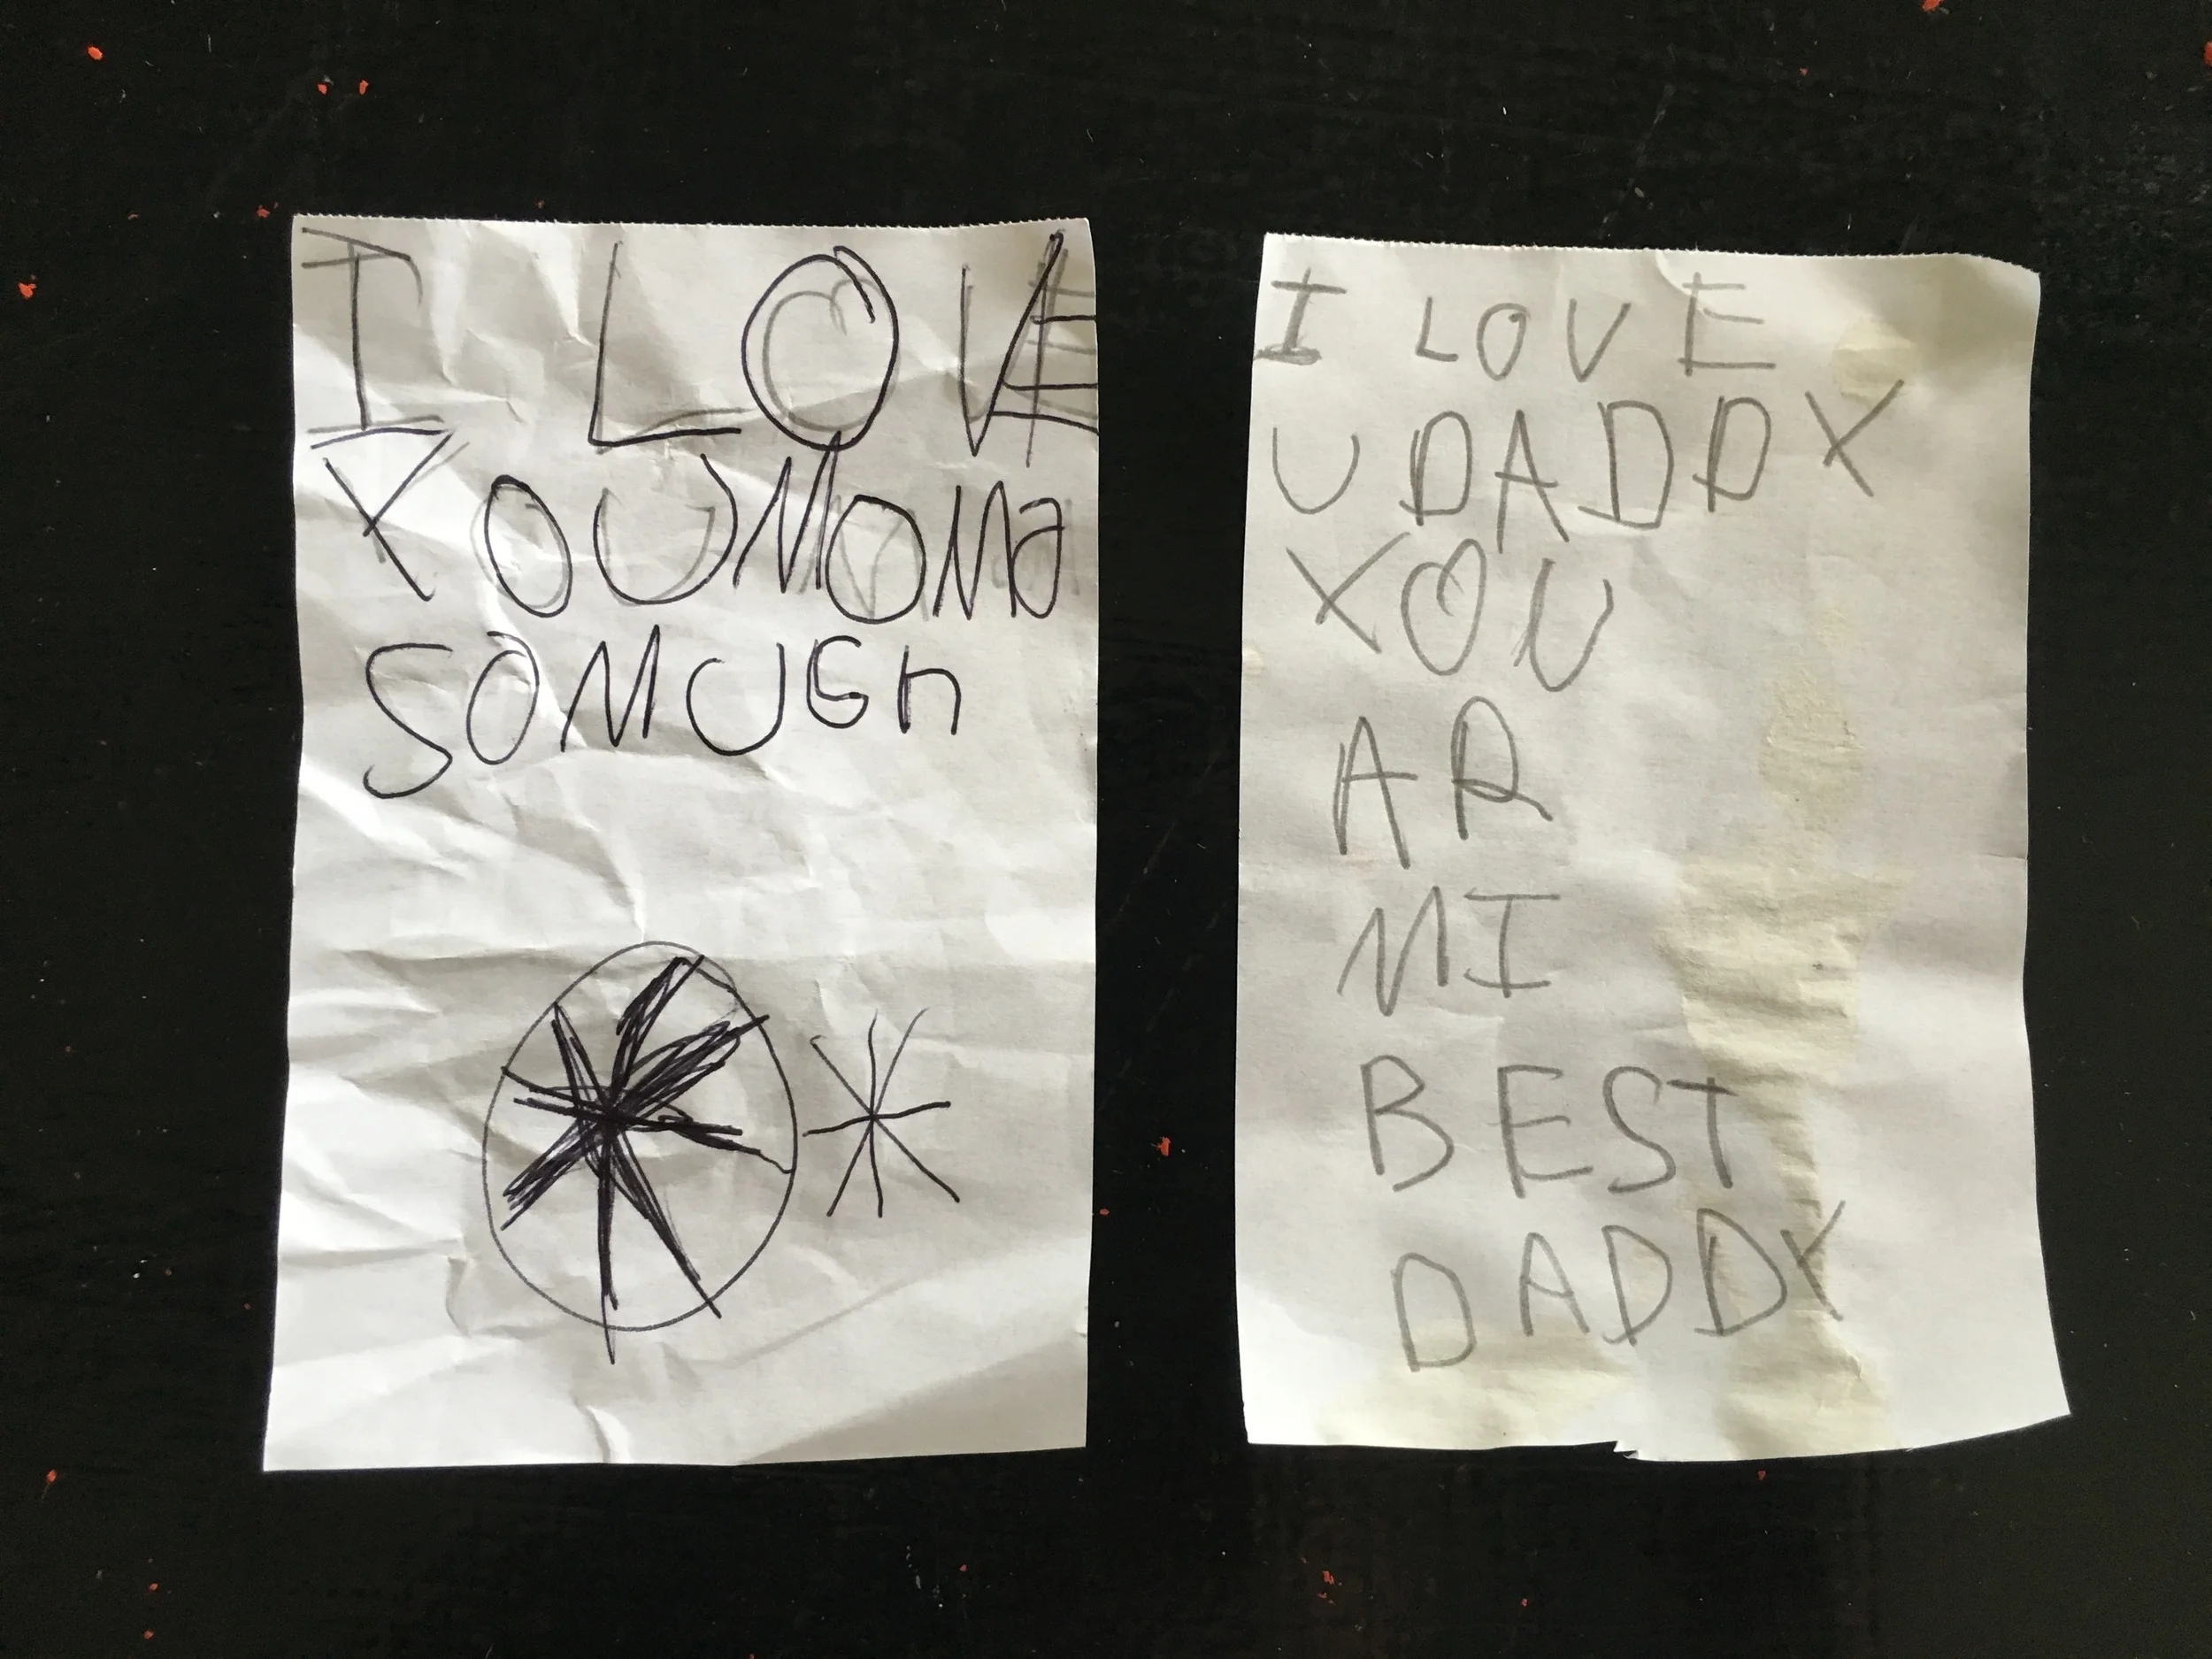 I LOVE
YOU MOMa
SO MUCh
I LOVE
U DADDY
YOU
AR
MI
BEST
DADDY